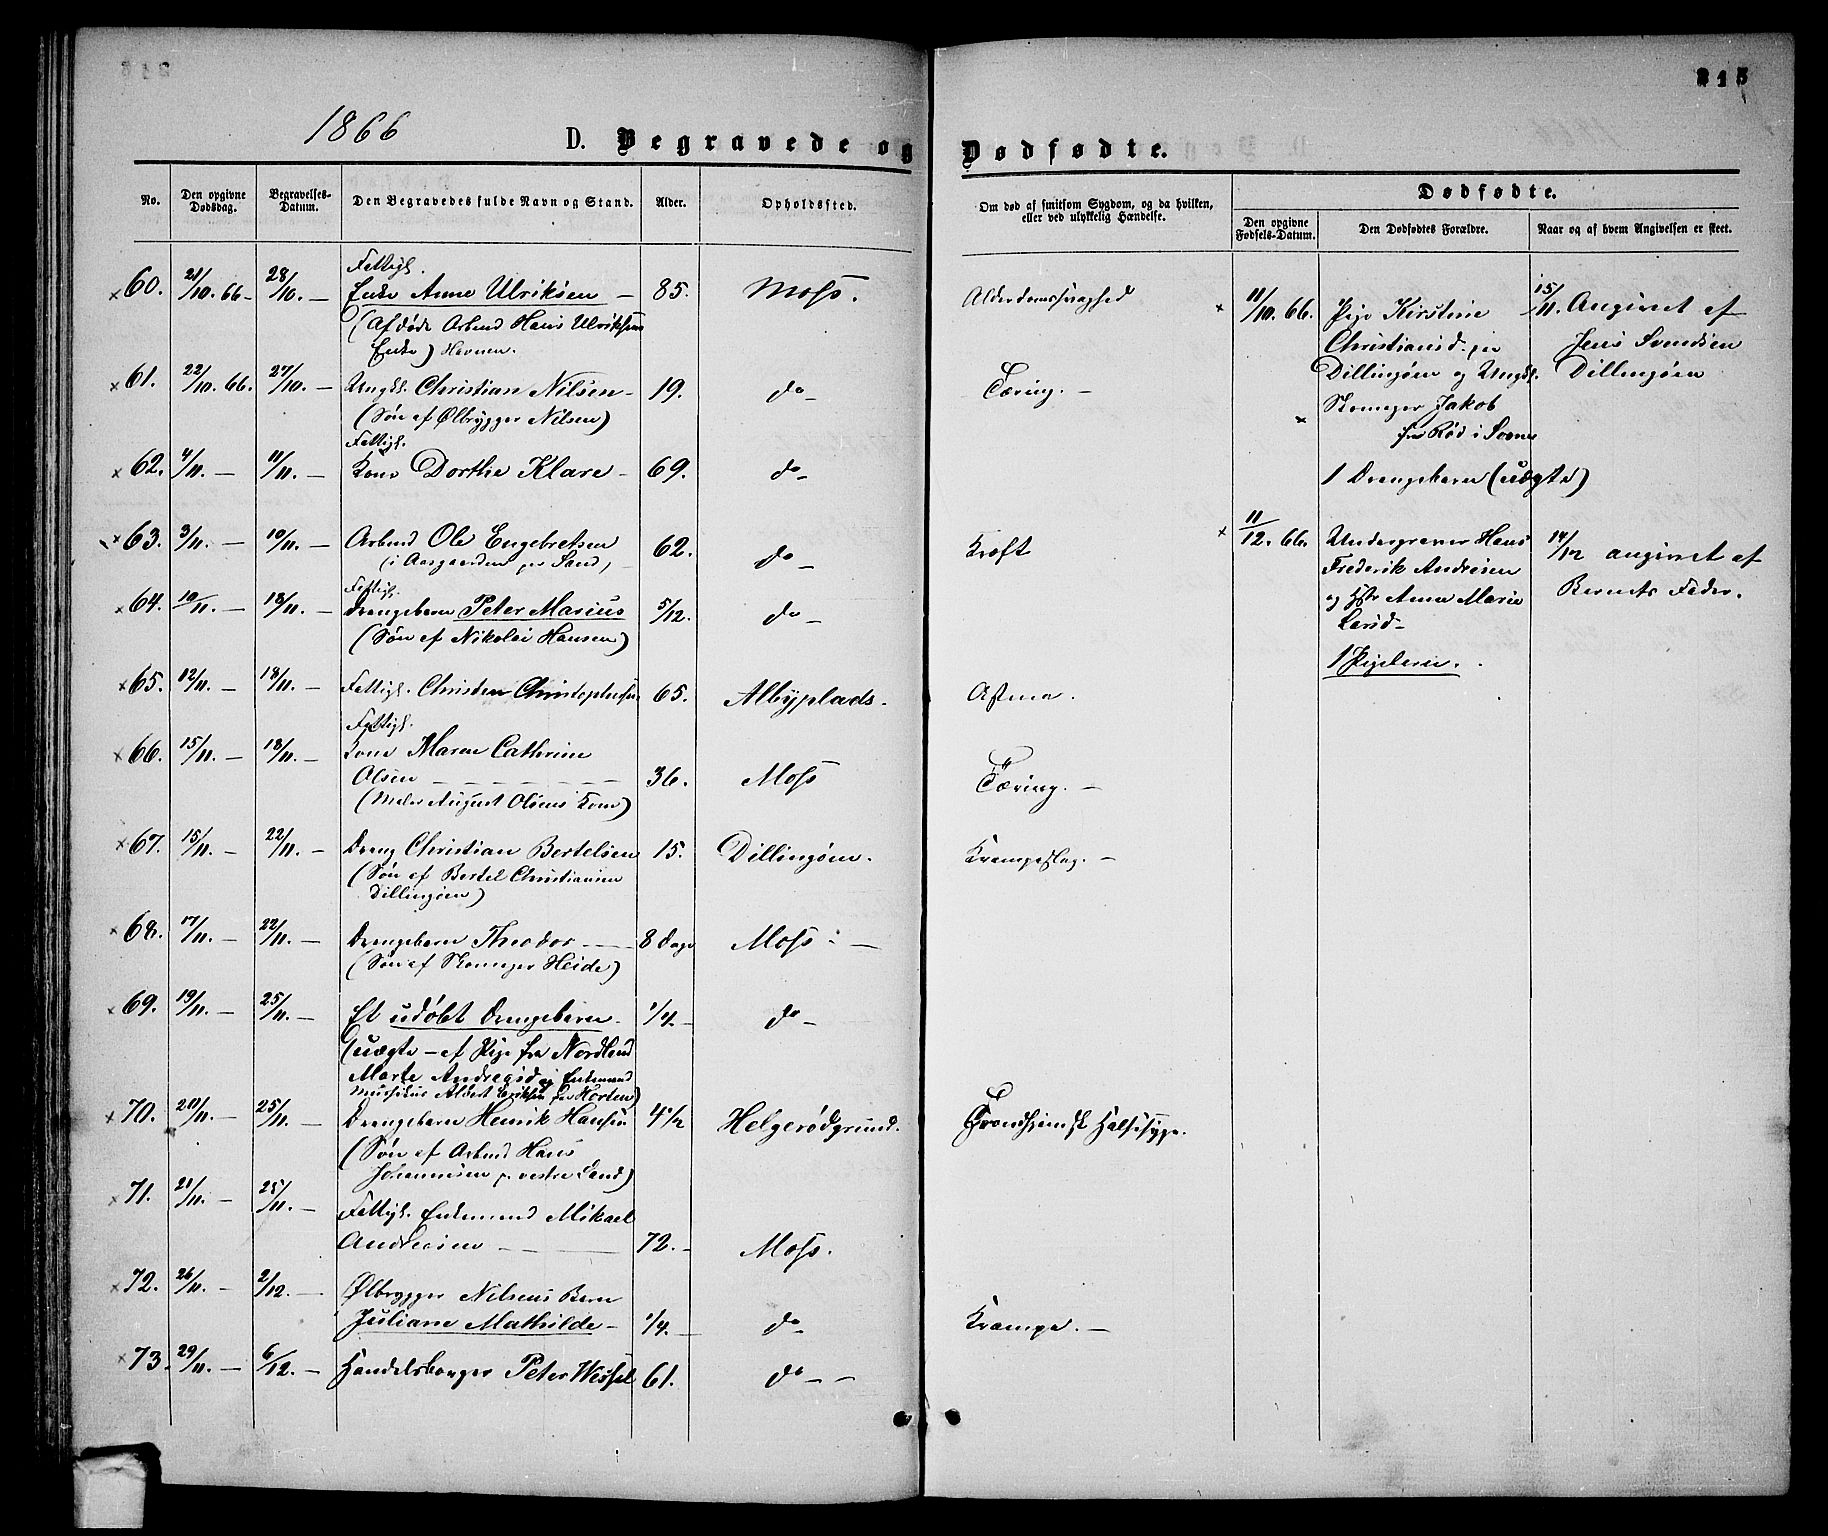 215
1866
D. Begravede og Dødfødte.
No. Den opgivne Dødsdag. Begravelses-Datum. Den Begravedes fulde Navn og Stand. Alder. Opholdssted.
Om død af smitsom Sygdom, og da hvilken, eller ved ulykkelig Hændelse.
Dødfødte.
Den opgivne Fødsels-Datum. Den Dødfødtes Forældre. Naar og af hvem Angivelsen er skeet.
Fattigl.
60. 21/10. 66 - 28/10. - Enke Anne Ulriksen - 85. Moss. Alderdomssvaghed
(Afdøde Arbmd Hans Ulriksens
Enke) Havnen.
61. 22/10. 66. 27/10. - Ungkl. Christian Nilsen - 19. do - Tæring. -
(Søn af Ølbrygger Nilsen)
Fattigl.
62. 4/11. - 11/11. - Kone Dorthe Klare - 69. do -
63. 3/11. - 10/11. - Arbmd Ole Engebretsen 62. do - Kræft
(i Aasgaarden pr Sand,
Fattigl.
64. 10/11. - 18/11. - Drengebarn Peter Marius 5/12. do -
(Søn af Nikolai Hansen)
65. 12/11. - 18/11. - Fattigl. Christen Christophersen 65. Albyplads. Astma.
Fattigl.
66. 15/11. - 18/11. - Kone Maren Cathrine
Olsen - 36. Moss Tæring. -
(Maler August Olsens Kone)
67. 15/11. - 22/11. - Dreng Christian Bertelsen 15. Dillingøen. Krampeslag. -
(Søn af Bertel Christiansen
Dillingøen)
68. 17/11. - 22/11. - Drengebarn Theodor - 8 Dage Moss. -
(Søn af Skomager Heide)
69. 19/11. - 25/11. - Et udøbt Drengebarn. 1/4 - do -
(uægte - af Pige fra Nordland
Marte Andreasd og Enkemand
Musikus Albert Eriksen fra Horten)
70. 20/11. - 25/11. - Drengebarn Henrik Hansen 4 1/2 Helgerødgrund. Trondhjemsk Halssyge.
(Søn af Arbmd Hans
Johannesen p. vestre Sand)
71. 21/11. - 25/11. - Fattigl. Enkemand Mikael
Andreasen - 72. - Moss.
72. 26/11. - 2/12. - Ølbrygger Nilsens Barn
Juliane Mathilde - 1/4. - do - Krampe. -
73. 29/11. - 6/12. - Handelsborger Peter Wessel 61. do - -
11/10. 66. Pige Kirstine 15/11. Angivet af
Christiansd. paa Jens Svendsen
Dillingøen og Ungkl. Dillingøen
Skomager Jakob
fra Rød i Soner
1 Drengebarn (uægte)
11/12. 66. Undergraver Hans 14/12 angivet af
Frederik Andresen Barnets Fader.
og Hstr Anne Marie
Larsd -
1 Pigebarn.